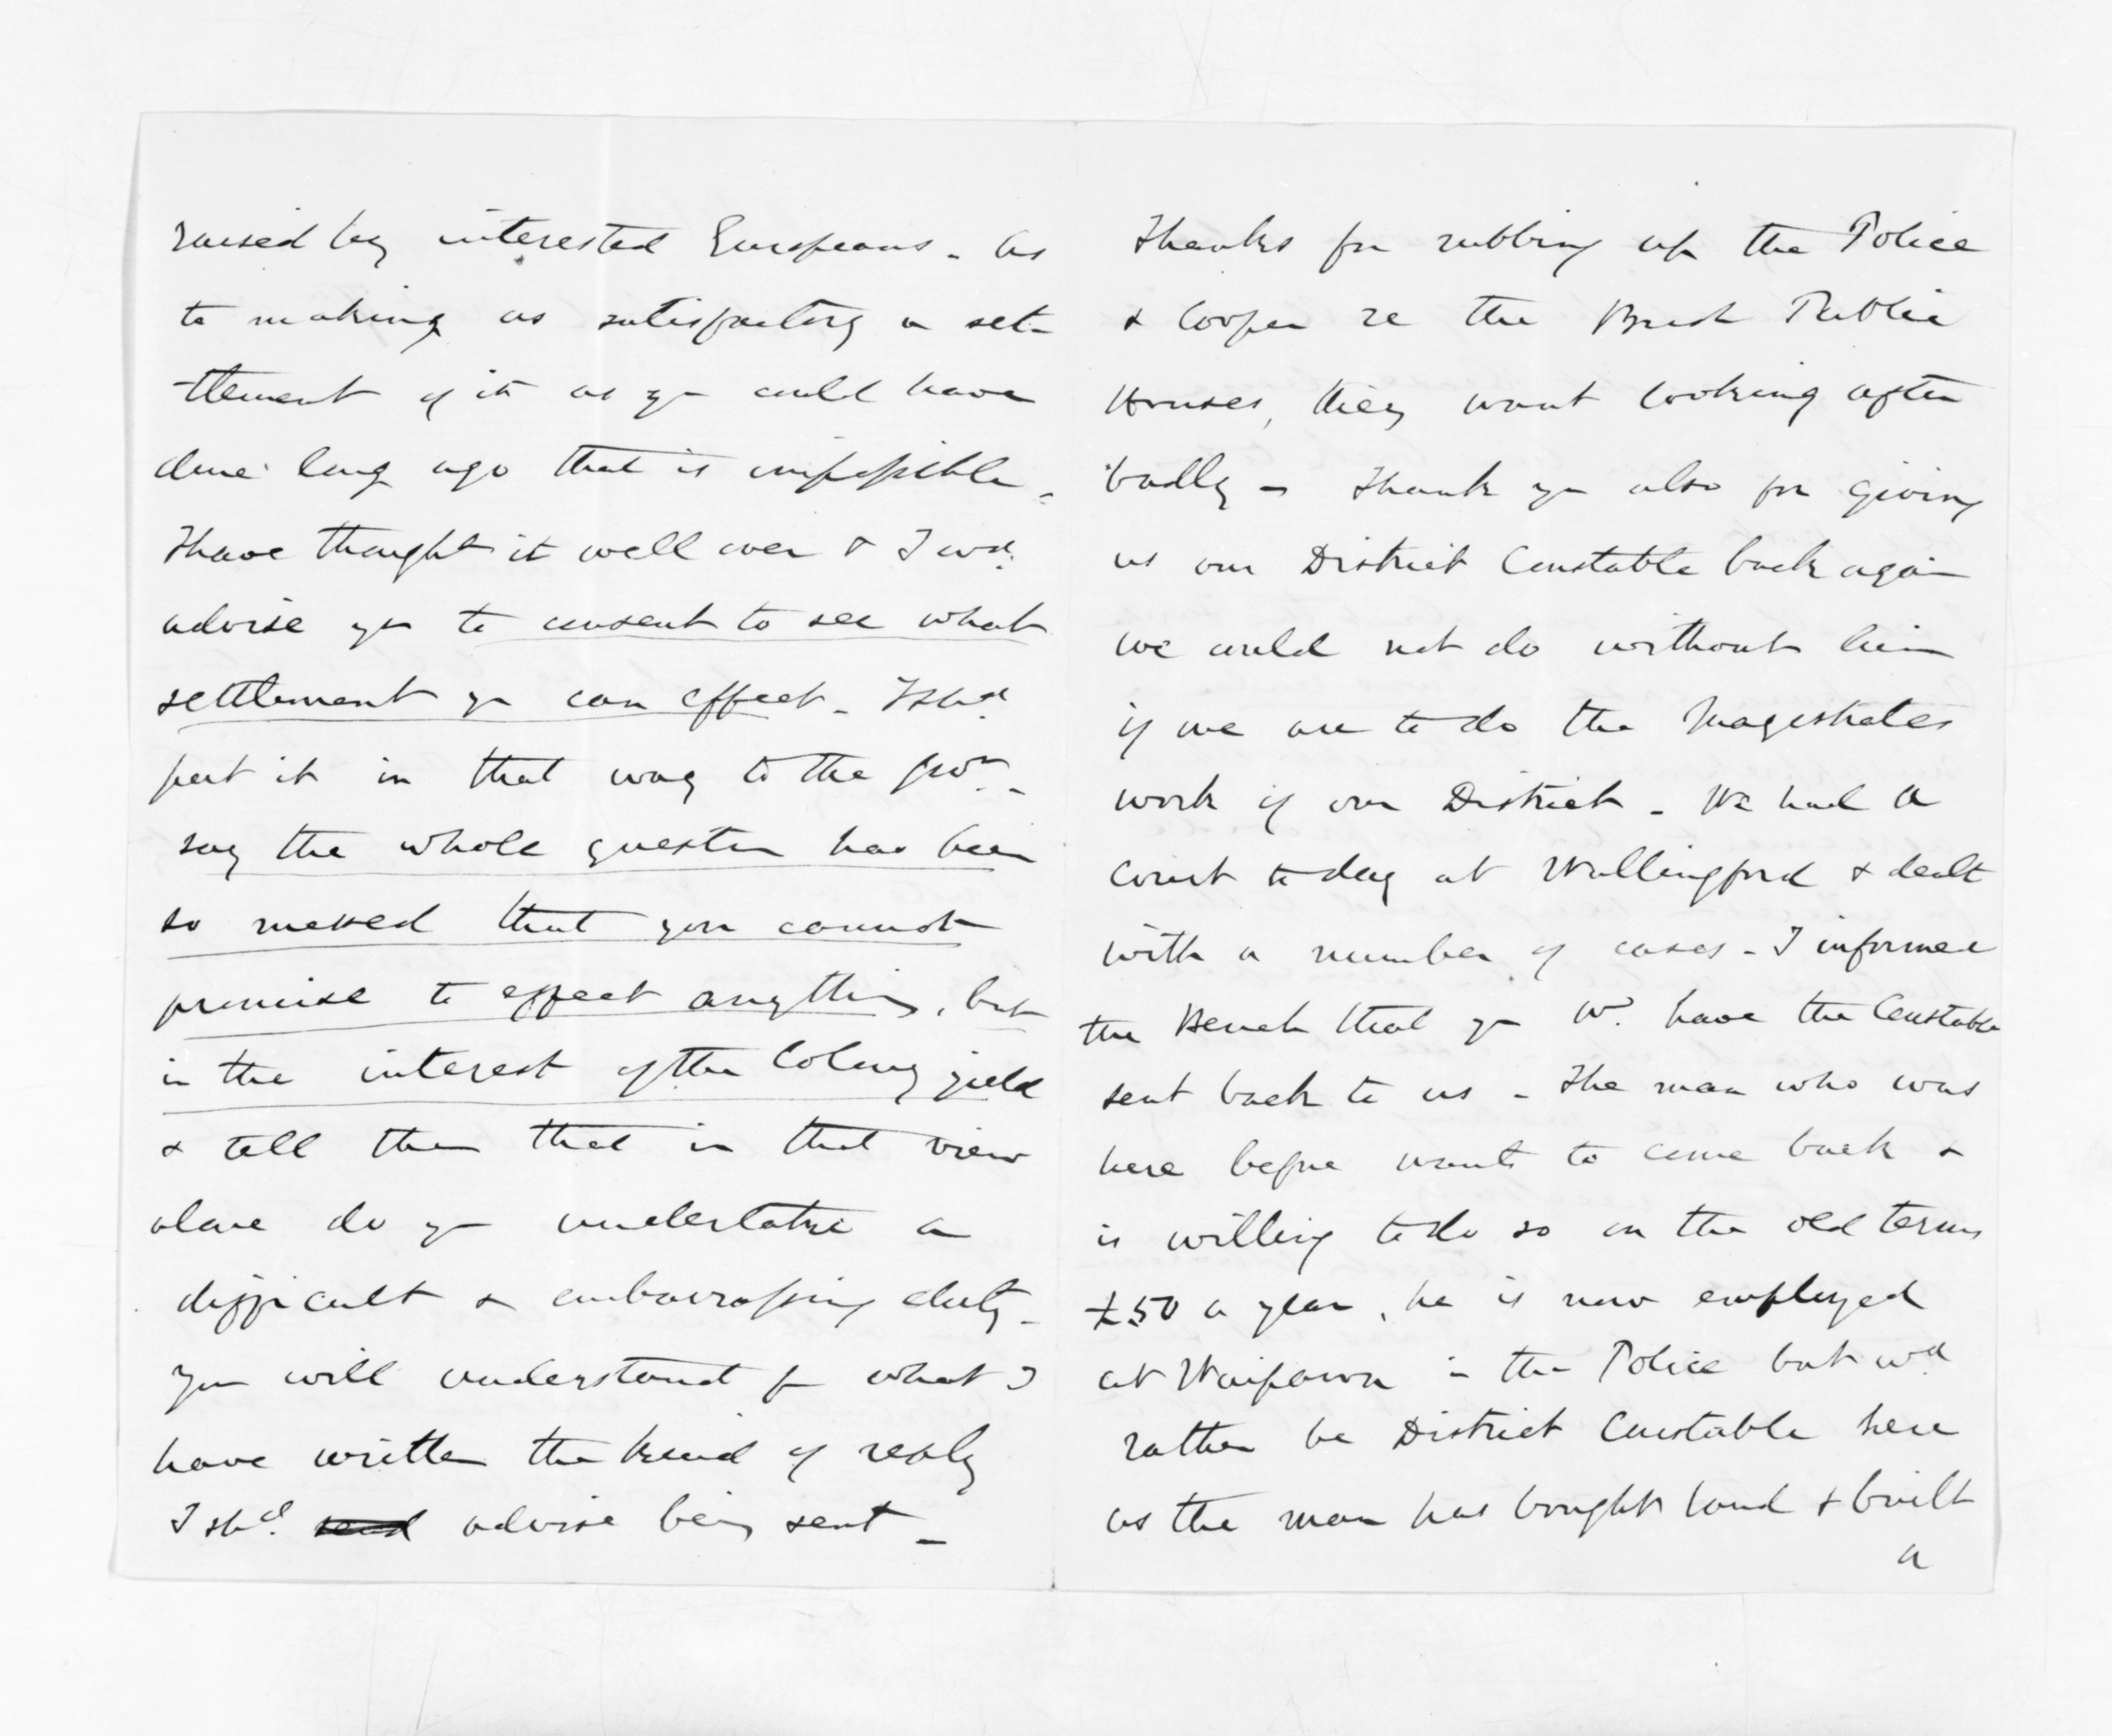 raised by interested Europeans - as
to making as satisfactory a set-
tlement of it as yu could have
done long ago that is impossible -
I have thought it well over & I wd.
advise yu to consent to see what
settlement yu can effect - I shd.
put it in that way to the Govt. -
say the whole question has been
so messed that you cannot
promise to effect anything, but
in the interest of the Colony yield
& tell them that in that view
alone do yu undertake a
difficult & embarrassing duty -
You will understand fm what I
have written the kind of reply
I shd. send advise being sent -
Thanks for rubbing up the Police
& Cooper re the Bush Public
Houses, they want looking after
badly - Thank yu also for giving
us our District Constable back again
we could not do without him
if we are to do the Magistrates
work of our District - We had a
Court to day at Wallingford & dealt
with a number of cases - I informed
the Bench that yu wd. have the Constable
sent back to us - The man who was
here before wants to come back &
is willing to do so on the old terms
£50 a year, he is now employed
at Waipawa in the Police but wd.
rather be District Constable here
as the man has bought land & built
a